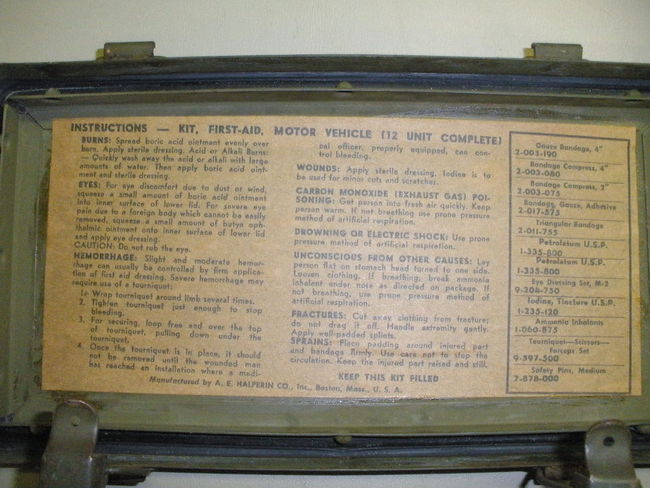 INSTRUCTIONS — KIT, FIRST-AID, MOTOR VEHICLE (12 UNIT COMPLETE)
BURNS: Spread boric acid ointment evenly over
burn. Apply sterile dressing. Acid or Alkali Burns:
— Quickly wash away the acid or alkali with large
amounts of water. Then apply boric acid oint-
ment and sterile dressing.
EYES: For eye discomfort due to dust or wind,
squeeze a small amount of boric acid ointment
into inner surface of lower lid. For severe eye
pain due to a foreign body which cannot be easily
removed, squeeze a small amount of butyn oph-
thalmic ointment onto inner surface of lower lid
and apply eye dressing.
CAUTION: Do not rub the eye.
HEMORRHAGE: Slight and moderate hemor-
rhage can usually be controlled by firm applica-
tion of first aid dressing. Severe hemorrhage may
require use of a tourniquet:
1. Wrap tourniquet around limb several times.
2. Tighten tourniquet just enough to stop
bleeding.
3. For securing, loop free end over the top
of tourniquet, pulling down under the
tourniquet.
4. Once the tourniquet is in place, it should
not be removed until the wounded man
has reached an installation where a medi-
cal officer, properly equipped, can con-
trol bleeding.
WOUNDS: Apply sterile dressing. Iodine is to
be used for minor cuts and scratches.
CARBON MONOXIDE (EXHAUST GAS) POI-
SONING: Get person into fresh air quickly. Keep
person warm. If not breathing use prone pressure
method of artificial respiration.
DROWNING OR ELECTRIC SHOCK: Use prone
pressure method of artificial respiration.
UNCONSCIOUS FROM OTHER CAUSES: Lay
person flat on stomach head turned to one side.
Loosen clothing. If breathing, break ammonia
inhalent under nose as directed on package. If
not breathing, use prone pressure method of
artificial respiration.
FRACTURES: Cut away clothing from fracture;
do not drag it off. Handle extremely gently.
Apply well-padded splints.
SPRAINS: Place padding around injured part
and bandage firmly. Use care not to stop the
circulation. Keep the injured part raised and still.
KEEP THIS KIT FILLED
Manufactured by A. E. HALPERIN CO., Inc., Boston, Mass., U. S. A.
Gauze Bandage, 4"
2-003-190
Bandage Compress, 4"
2-003-080
Bandage Compress, 2"
2-003-075
Bandage, Gauze, Adhesive
2-017-575
Triangular Bandage
2-011-755
Petrolatum U.S.P.
1-335-800
Petrolatum U.S.P.
1-335-800
Eye Dressing Set, M-2
9-204-750
Iodine, Tincture U.S.P.
1-235-120
Ammonia Inhalants
1-060-875
Tourniquet—Scissors—
Forceps Set
9-597-500
Safety Pins, Medium
7-878-000